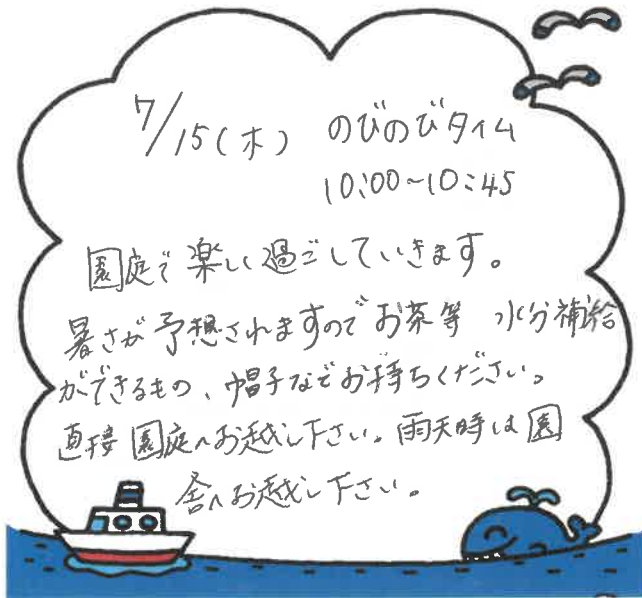 7/15(木) のびのびタイム
10:00~10:45
園庭で楽しく過ごしていきます。
暑さが予想されますのでお茶等 水分補給
ができるもの、帽子などお持ちください。
直接園庭へお越し下さい。雨天時は園
舎へお越し下さい。